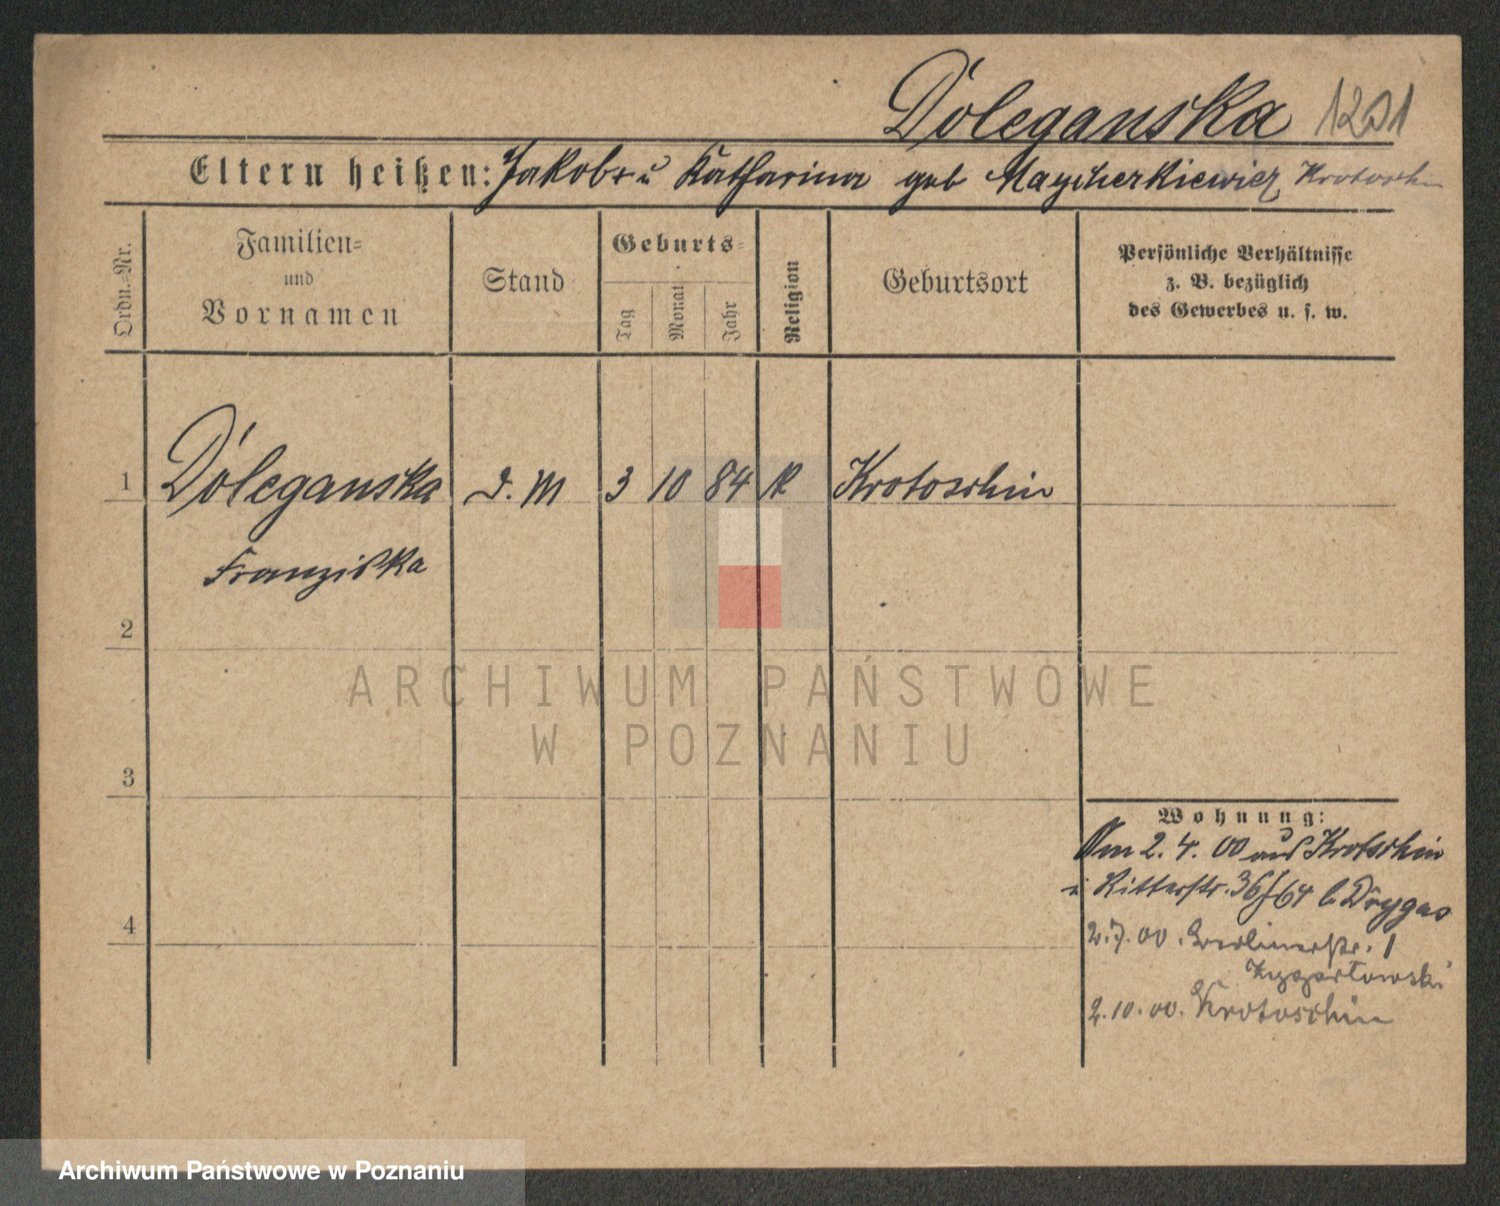 Doleganska 1201
Eltern heißen: Jakob u Katharina geb Maycherkiewicz Krotoschin
Ordn.-Nr.
Familien=
und
Vornamen
Stand
Geburts=
Tag
Monat
Jahr
Religion
Geburtsort
Persönliche Verhältnisse
z. B. bezüglich
des Gewerbes u. s. w.
1 Doleganska d. M 3 10 84 K Krotoschin
Franziska
2
3
4
Wohnung:
Am 2. 4. 00 aus Krotoschin
i Ritterstr. 36/64 b Drygas
2. 7. 00. Berlinerstr. 1
2. 10. 00. Krotoschin
ARCHIWUM PAŃSTWOWE
W POZNANIU
Archiwum Państwowe w Poznaniu